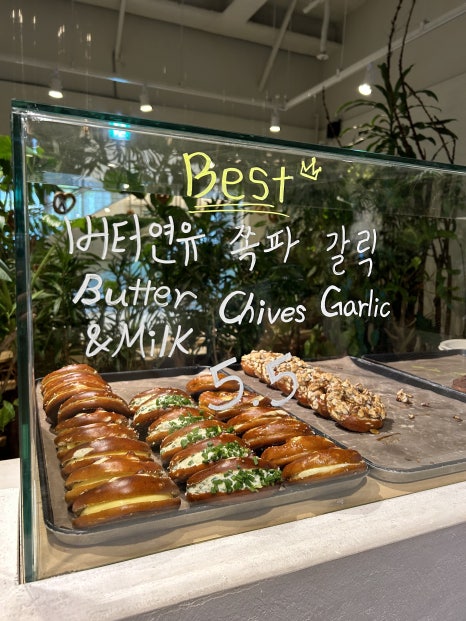 Best
버터연유 쪽파 갈릭
Butter Chives Garlic
&Milk
5 5